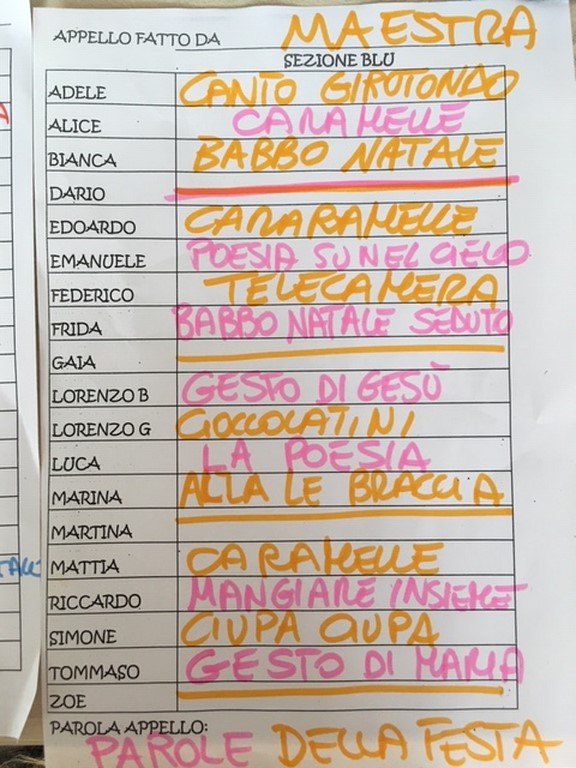 APPELLO FATTO DA MAESTRA
SEZIONE BLU
ADELE CANTO GIROTONDO
ALICE CARAMELLE
BIANCA BABBO NATALE
DARIO
EDOARDO CARARAMELLE
EMANUELE POESIA SU NEL CIELO
FEDERICO TELECAMERA
FRIDA BABBO NATALE SEDUTO
GAIA
LORENZO B GESTO DI GESÙ
LORENZO G CIOCCOLATINI
LUCA LA POESIA
MARINA ALLA LE BRACCIA
MARTINA
MATTIA CARAMELLE
RICCARDO MANGIARE INSIEME
SIMONE CIUPA CIUPA
TOMMASO GESTO DI MARIA
ZOE
PAROLA APPELLO:
PAROLE DELLA FESTA